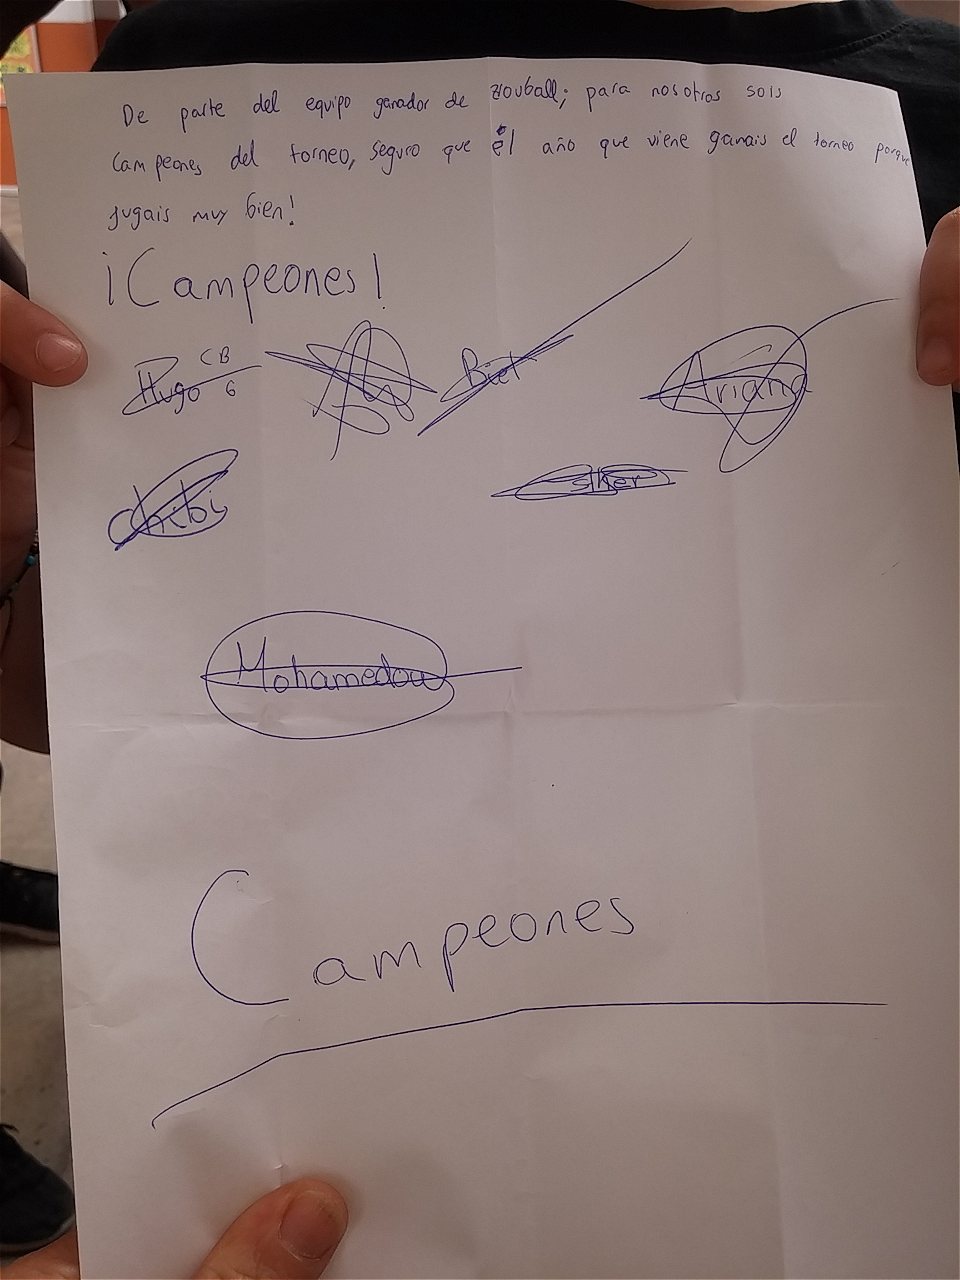 De parte del equipo ganador de zouball; para nosotros sois
campeones del torneo, seguro que el año que viene ganais el torneo porque
jugais muy bien!
¡Campeones!
Hugo CB 6 Biel Ariana
chibi Esther
Mohamedou
Campeones